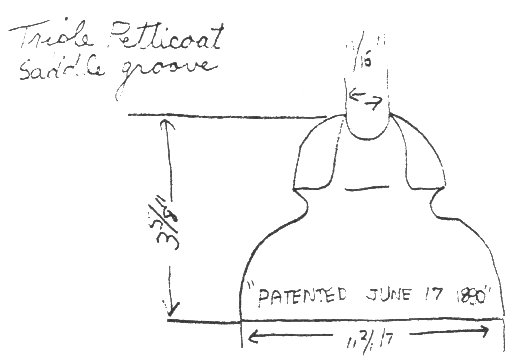 Triple Petticoat
Saddle groove
3 5/8"
"PATENTED JUNE 17 1890"